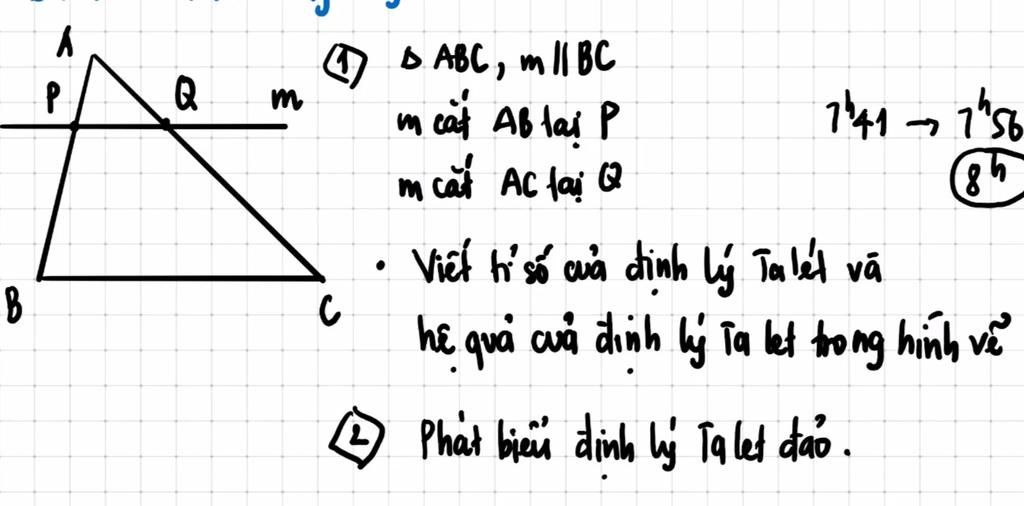 A
P
Q
m
B
C
① Δ ABC, m // BC
m cắt AB tại P
m cắt AC tại Q
7h41 → 7h56
8h
• Viết tỉ số của định lý Talét và
hệ quả của định lý Ta let trong hình vẽ
② Phát biểu định lý Ta let đảo.